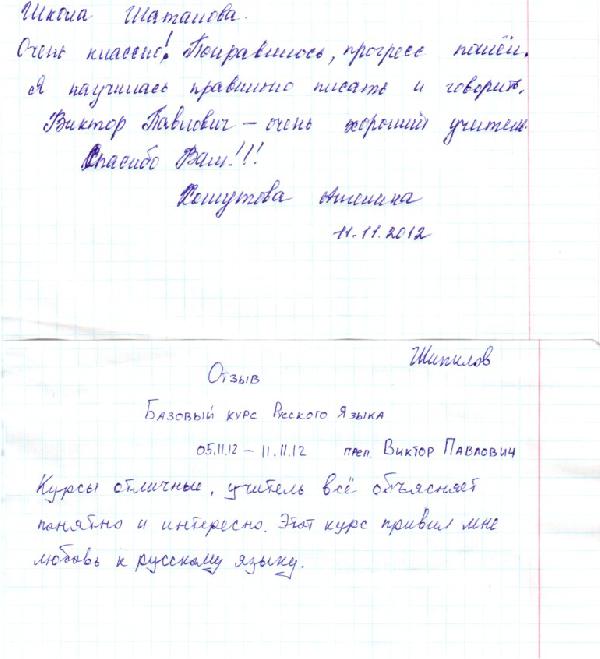 Школа Шаталова.
Очень классно! Понравилось, прогресс пошёл.
Я научилась правильно писать и говорить.
Виктор Павлович – очень хороший учитель.
Спасибо Вам!!!
11.11.2012
Шипилов
Отзыв
Базовый курс Русского Языка
05.11.12 – 11.11.12 преп. Виктор Павлович
Курсы отличные, учитель всё объясняет
понятно и интересно. Этот курс привил мне
любовь к русскому языку.